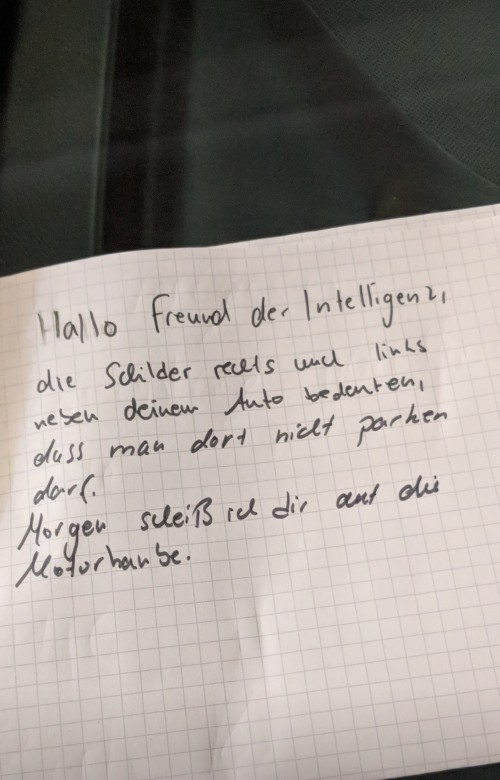 Hallo Freund der Intelligenz,
die Schilder rechts und links
neben deinem Auto bedeuten,
dass man dort nicht parken
darf.
Morgen scheiß ich dir auf die
Motorhaube.